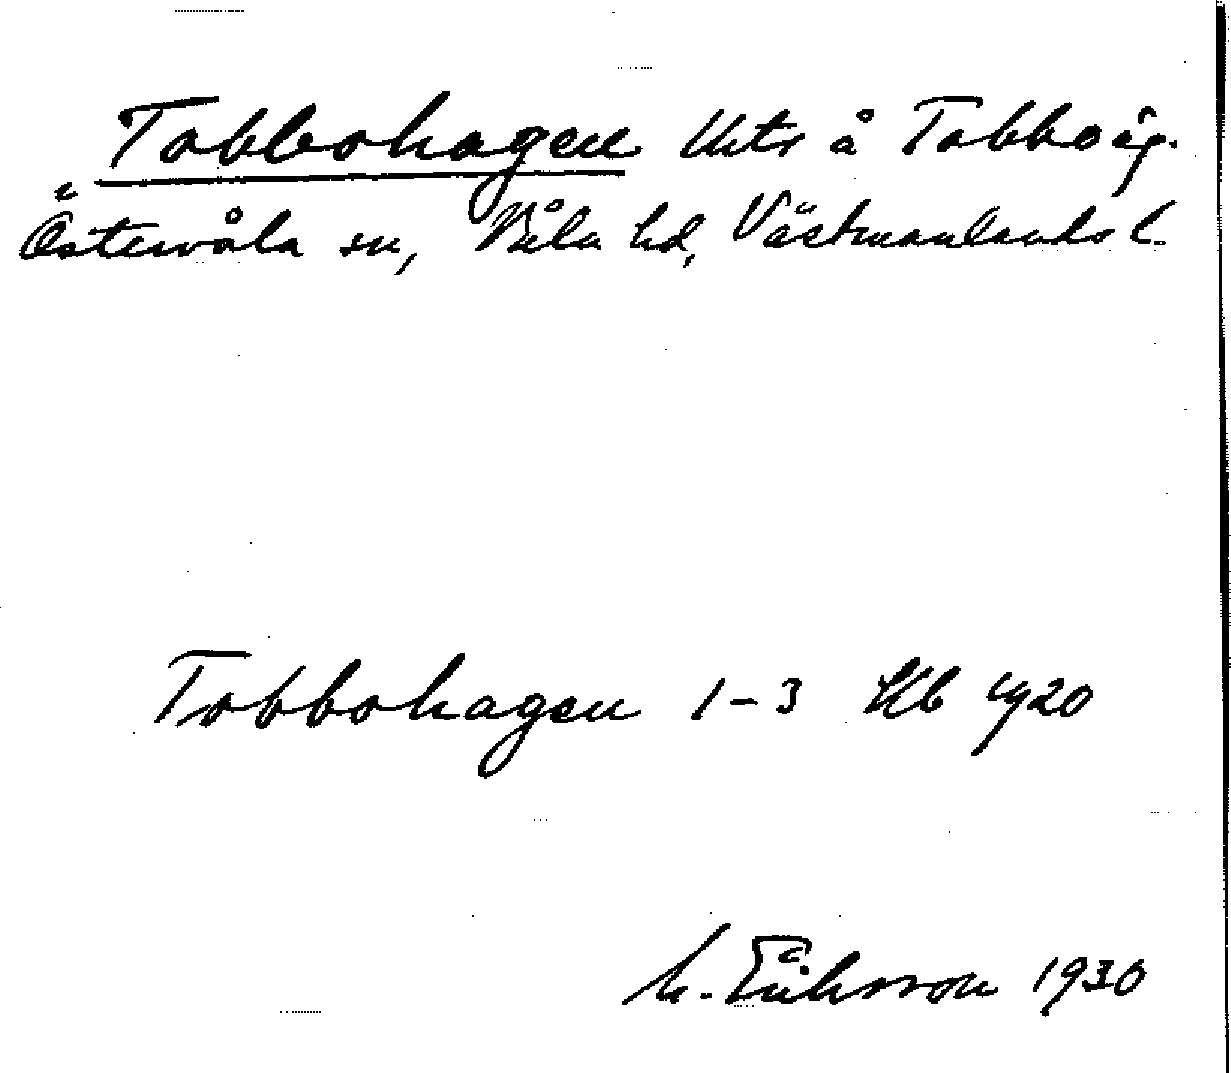 Tobbohagen lhts å Tobbo äg.
Östervåla sn, Våla hd, Västmanlands l.
Tobbohagen 1-3 Kb 1920
M. Eriksson 1930